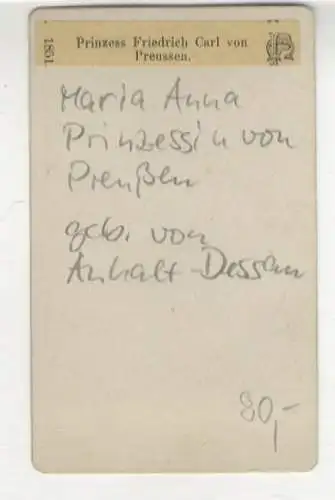 1861
Prinzess Friedrich Carl von
Preussen.
Maria Anna
Prinzessin von
Preußen
geb. von
Anhalt-Dessau
80,-